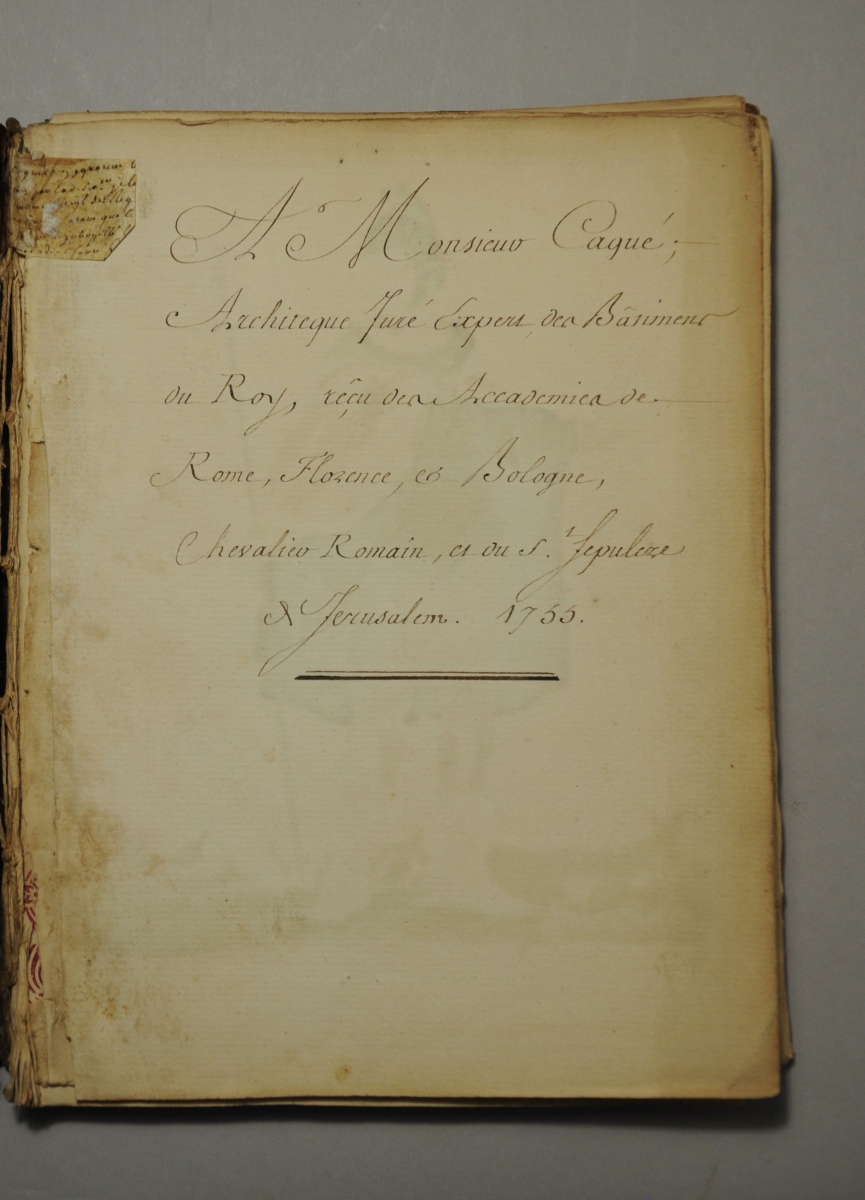 A Monsieur Caqué;
Architeque Juré Expert des Bâtimens
du Roy, réçu des Accademies de
Rome, Florence, & Bologne,
Chevalier Romain, et du S.t Sepulcre
de Jerusalem. 1755.